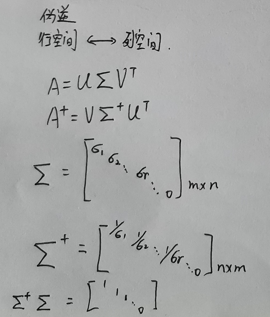 伪逆
行空间 ⟷ 列空间.
A = U Σ V^T
A^+ = V Σ^+ U^T
Σ = [σ₁ σ₂ ⋱ σr ⋱ 0] m×n
Σ^+ = [1/σ₁ 1/σ₂ ⋱ 1/σr ⋱ 0] n×m
Σ^+ Σ = [1 1 1 ⋱ 0]